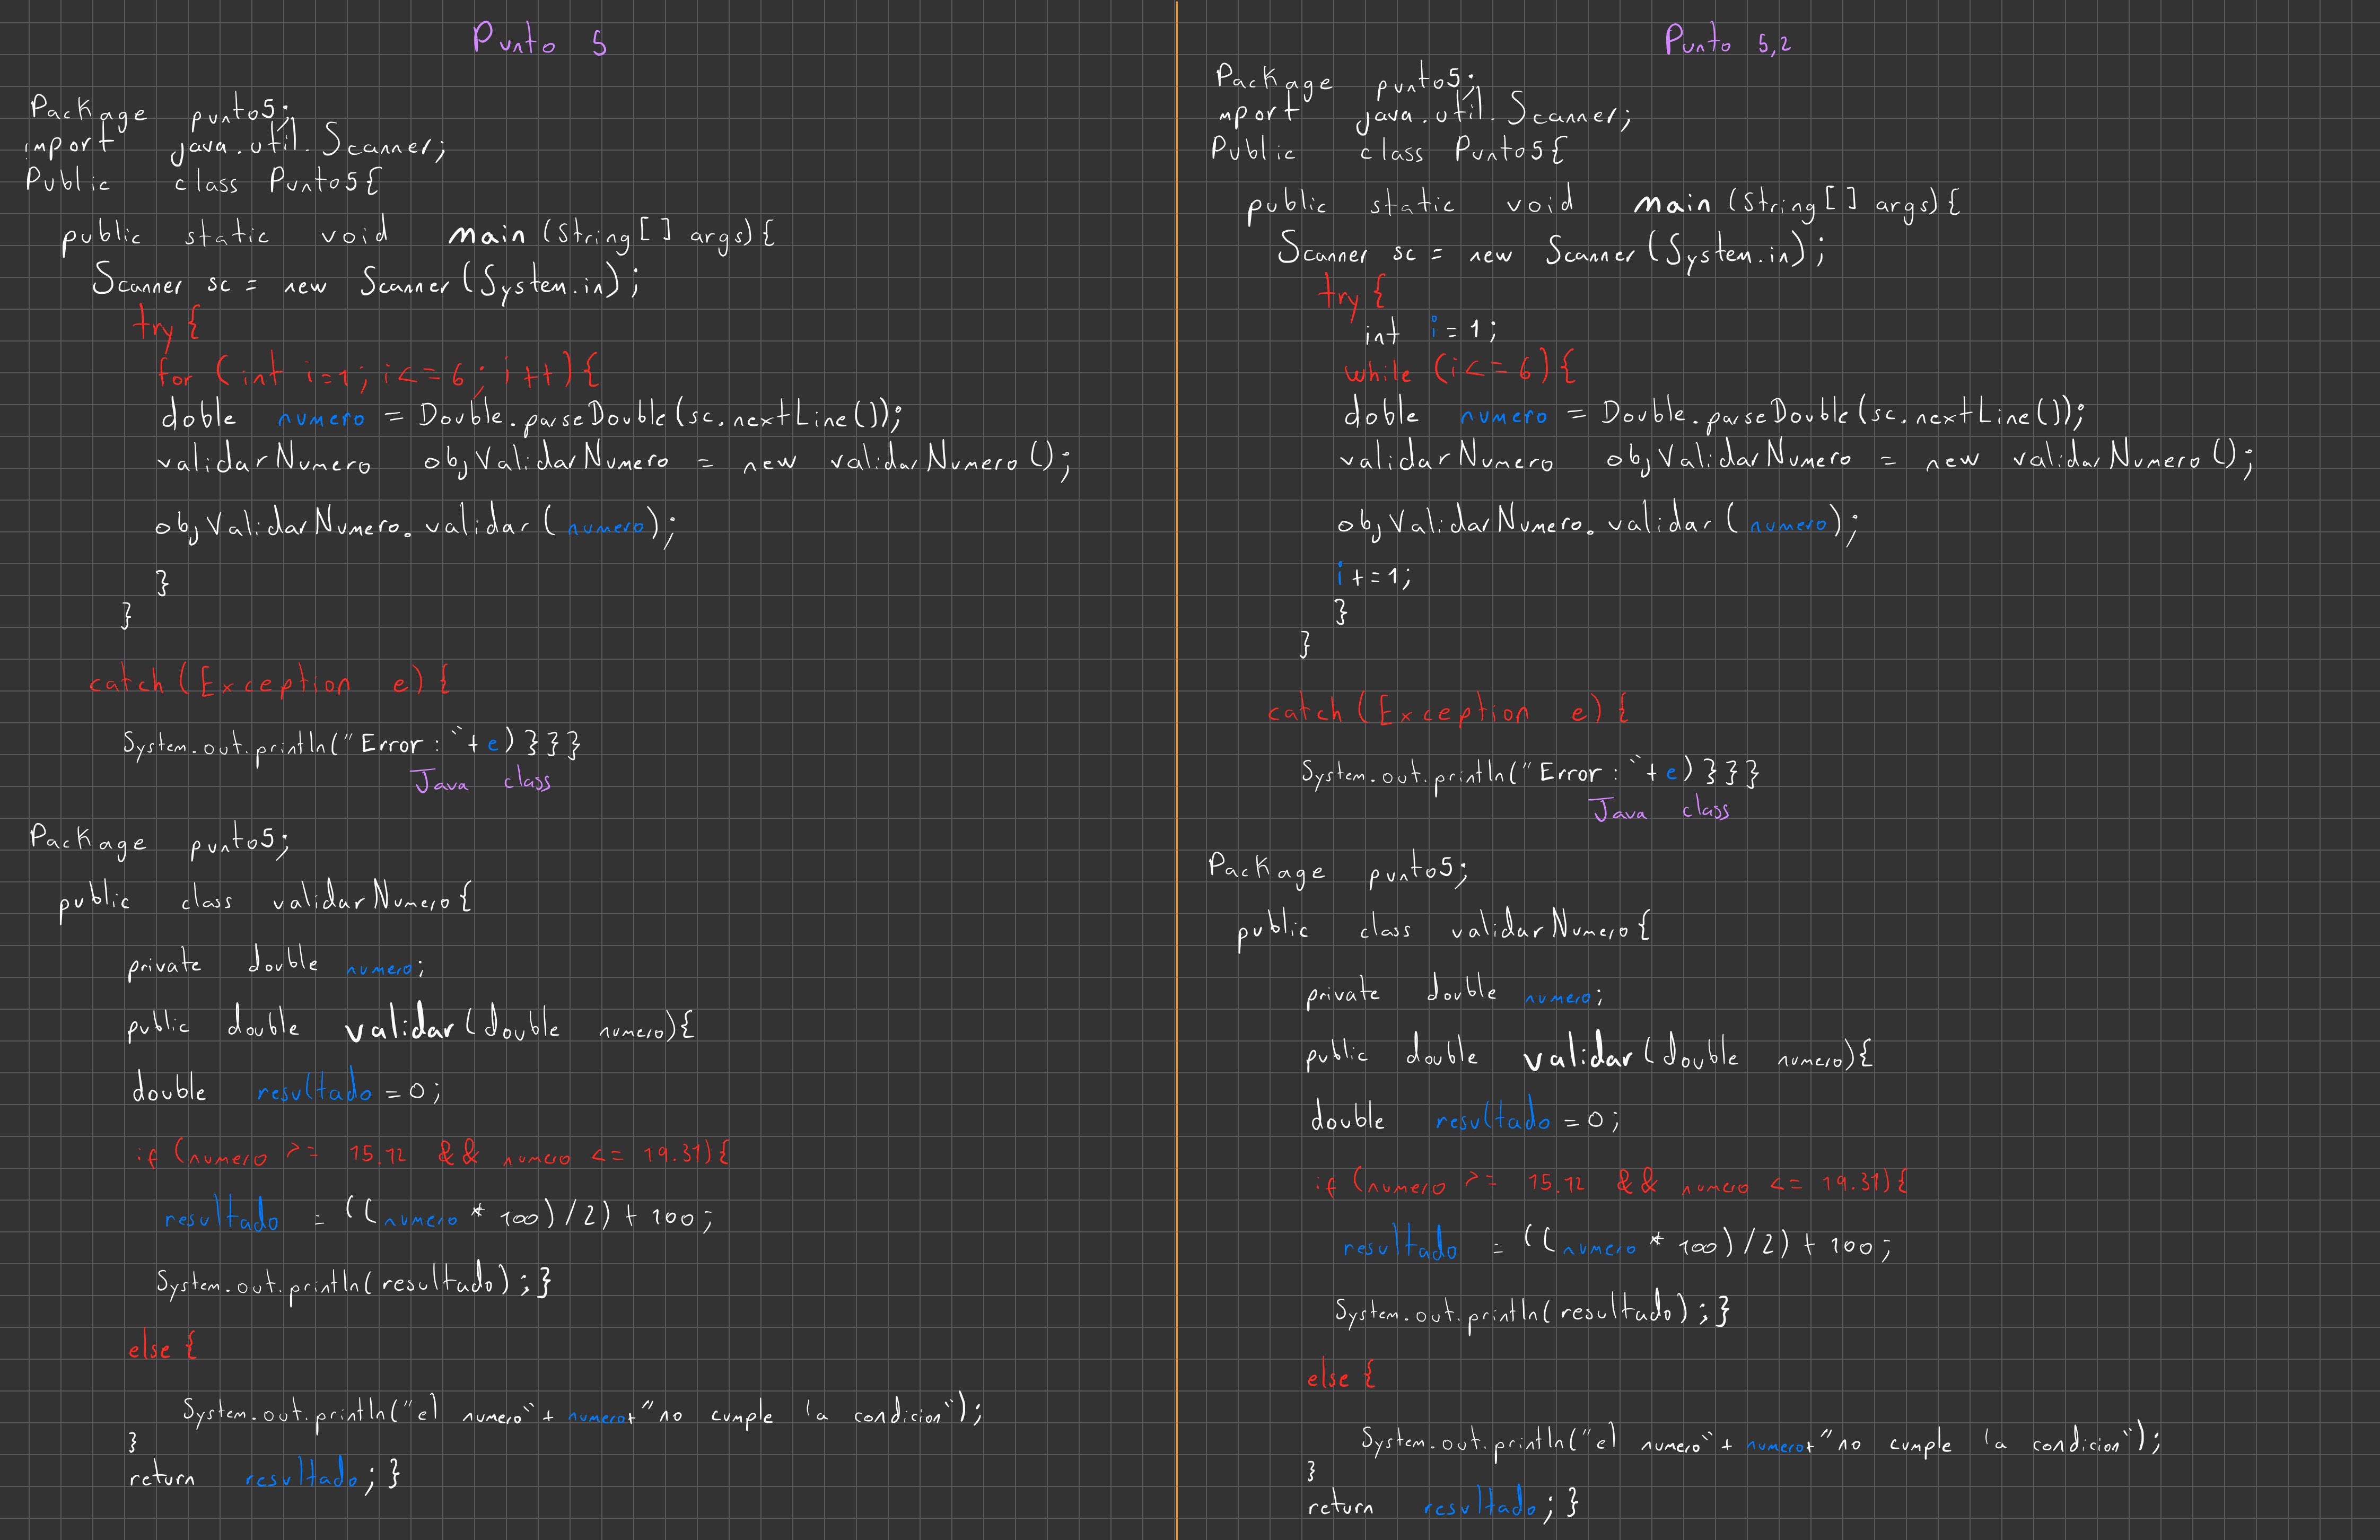 Punto 5
Package punto5;
import java.util.Scanner;
Public class Punto5{
public static void main (String[] args){
Scanner sc = new Scanner(System.in);
try{
for (int i=1; i<=6; i++){
doble numero = Double.parseDouble(sc.nextLine());
validarNumero objValidarNumero = new validarNumero();
objValidarNumero.validar(numero);
}
}
catch(Exception e){
System.out.println("Error: "+e)}}}
Java class
Package punto5;
public class validarNumero{
private double numero;
public double validar(double numero){
double resultado = 0;
if (numero >= 15.72 && numero <= 19.31){
resultado = ((numero * 100)/2) + 100;
System.out.println(resultado);}
else{
System.out.println("el numero"+numero+"no cumple la condicion");
}
return resultado;}
Punto 5,2
Package punto5;
mport java.util.Scanner;
Public class Punto5{
public static void main (String[] args){
Scanner sc = new Scanner(System.in);
try{
int i=1;
while (i<=6){
doble numero = Double.parseDouble(sc.nextLine());
validarNumero objValidarNumero = new validarNumero();
objValidarNumero.validar(numero);
i+=1;
}
}
catch(Exception e){
System.out.println("Error: "+e)}}}
Java class
Package punto5;
public class validarNumero{
private double numero;
public double validar(double numero){
double resultado = 0;
if (numero >= 15.72 && numero <= 19.31){
resultado = ((numero * 100)/2) + 100;
System.out.println(resultado);}
else{
System.out.println("el numero"+numero+"no cumple la condicion");
}
return resultado;}